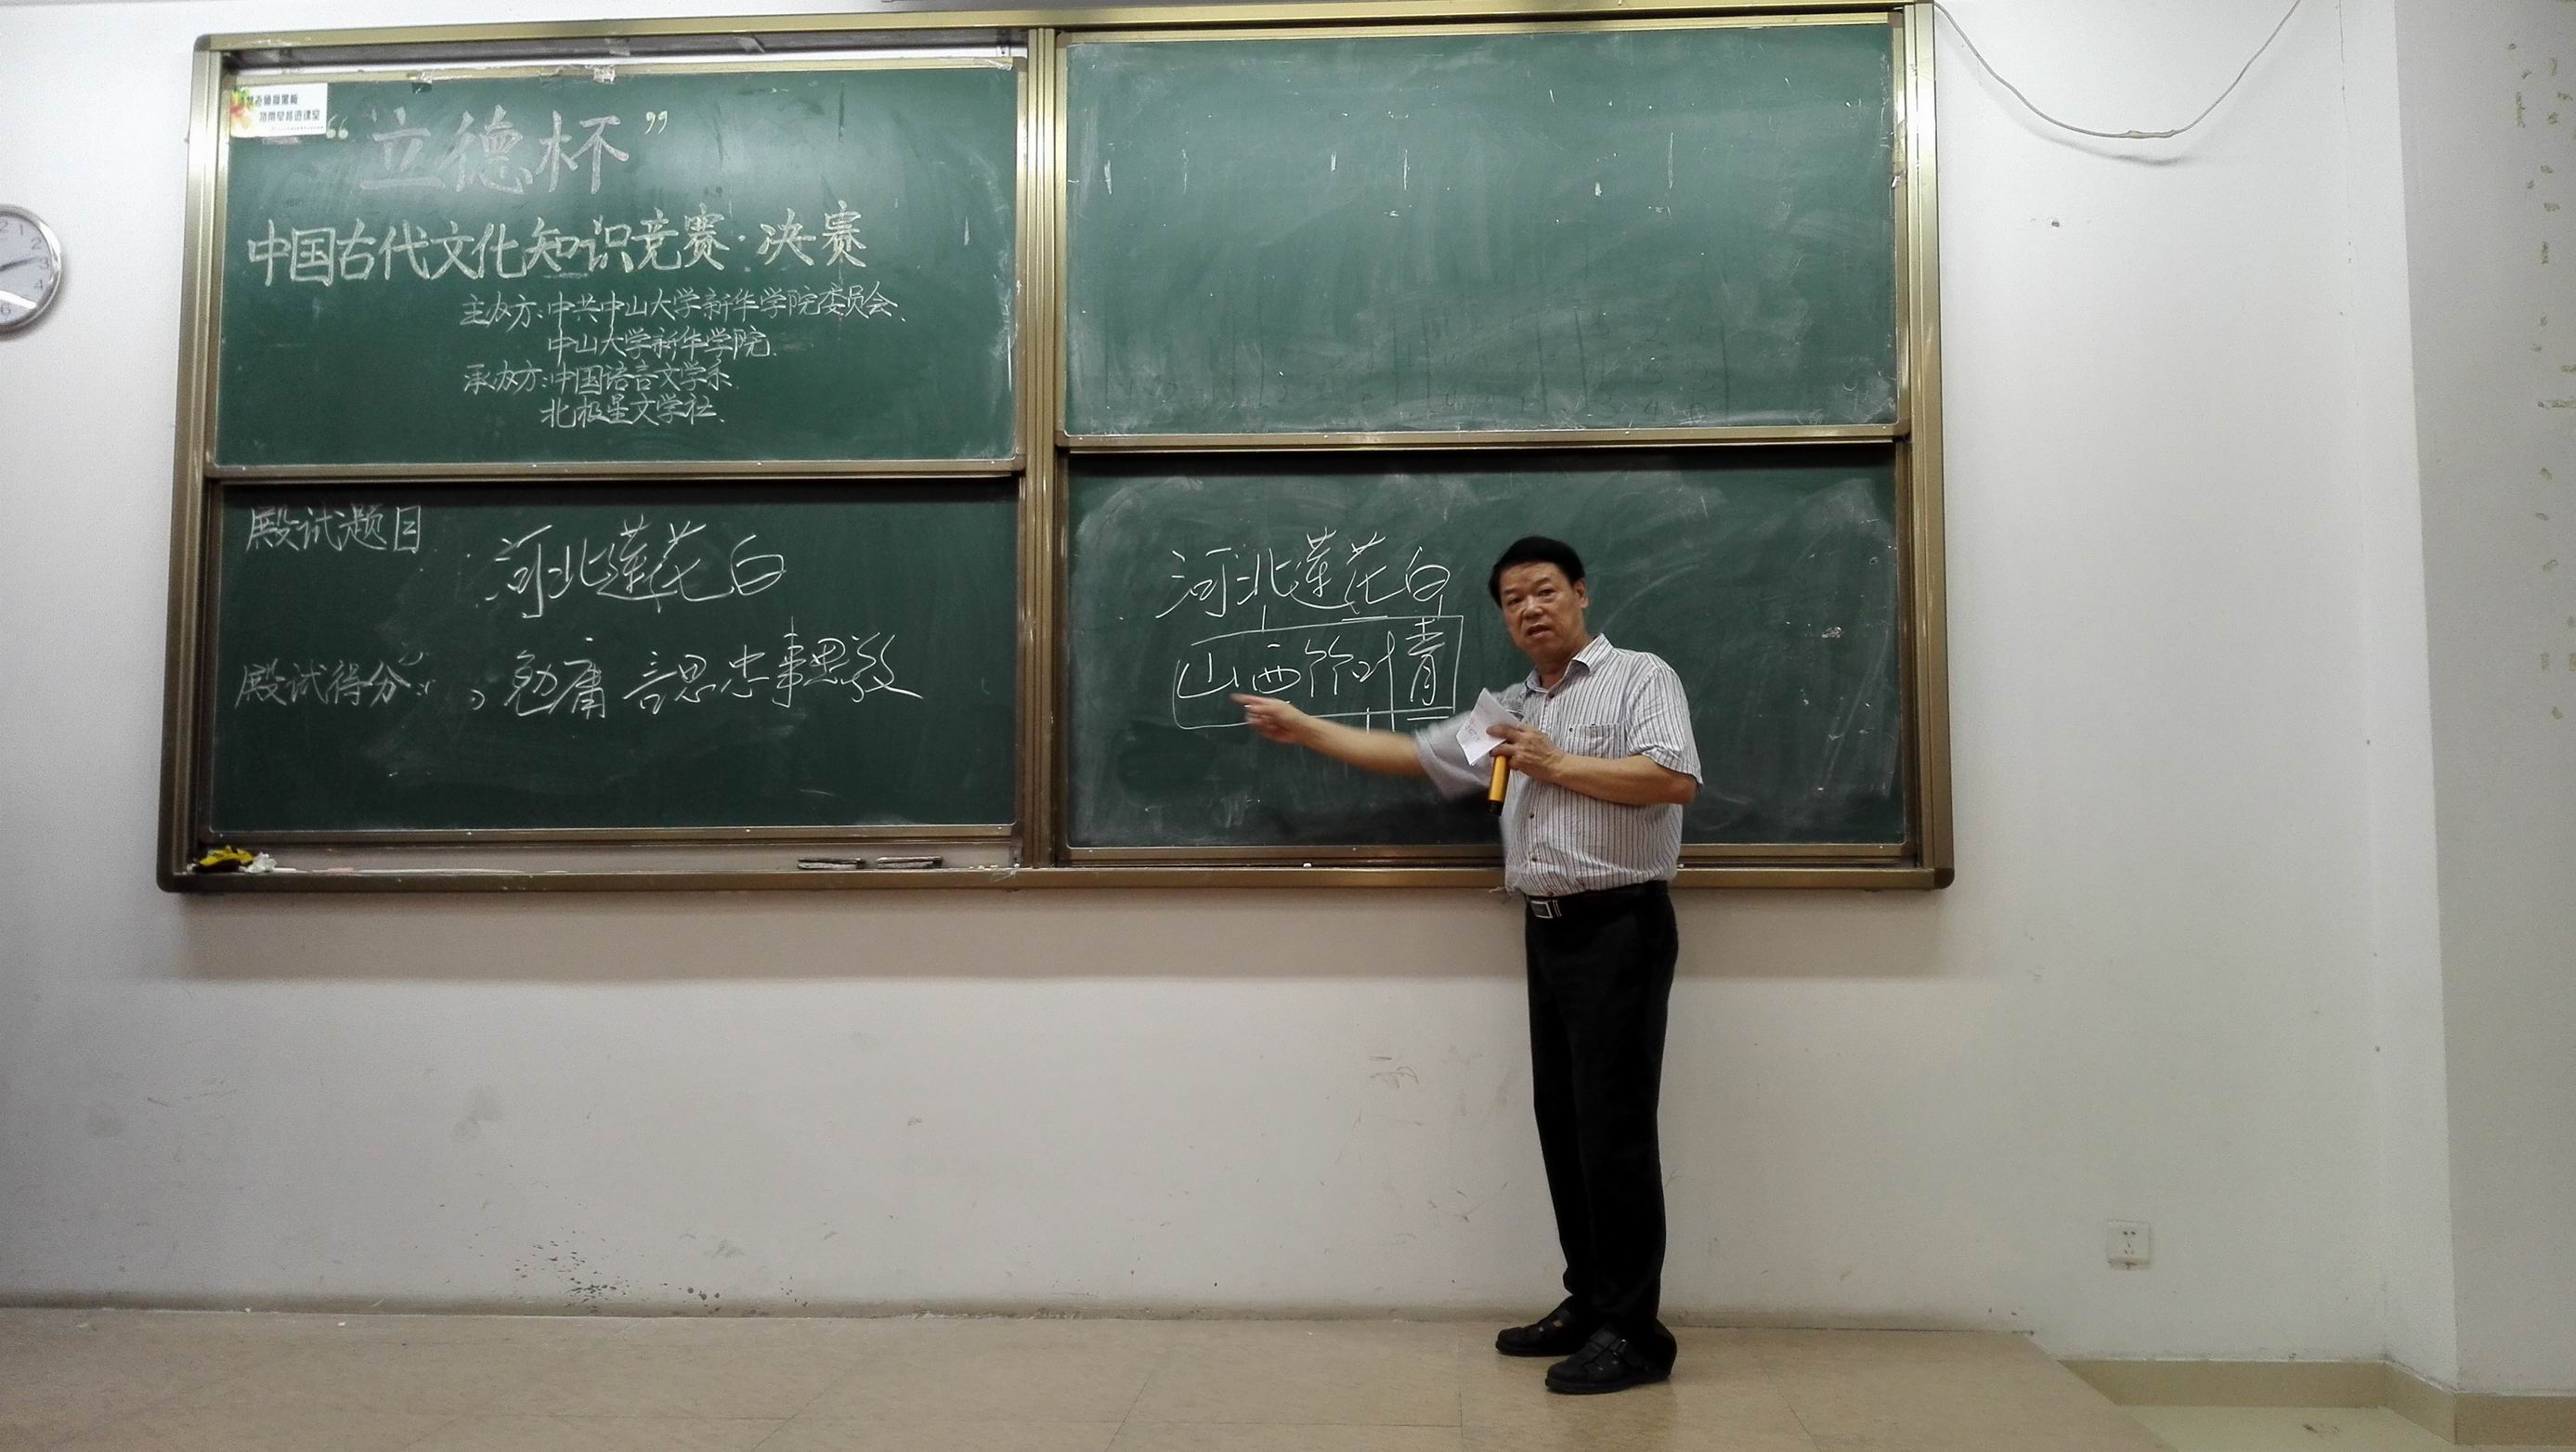 “立德杯”
中国古代文化知识竞赛·决赛
主办方:中共中山大学新华学院委员会、
中山大学新华学院.
承办方:中国语言文学系.
北极星文学社.
殿试题目
河北莲花白
殿试得分:
言思忠事思敬
河北莲花白
山西竹叶青
1
2
3
4
6